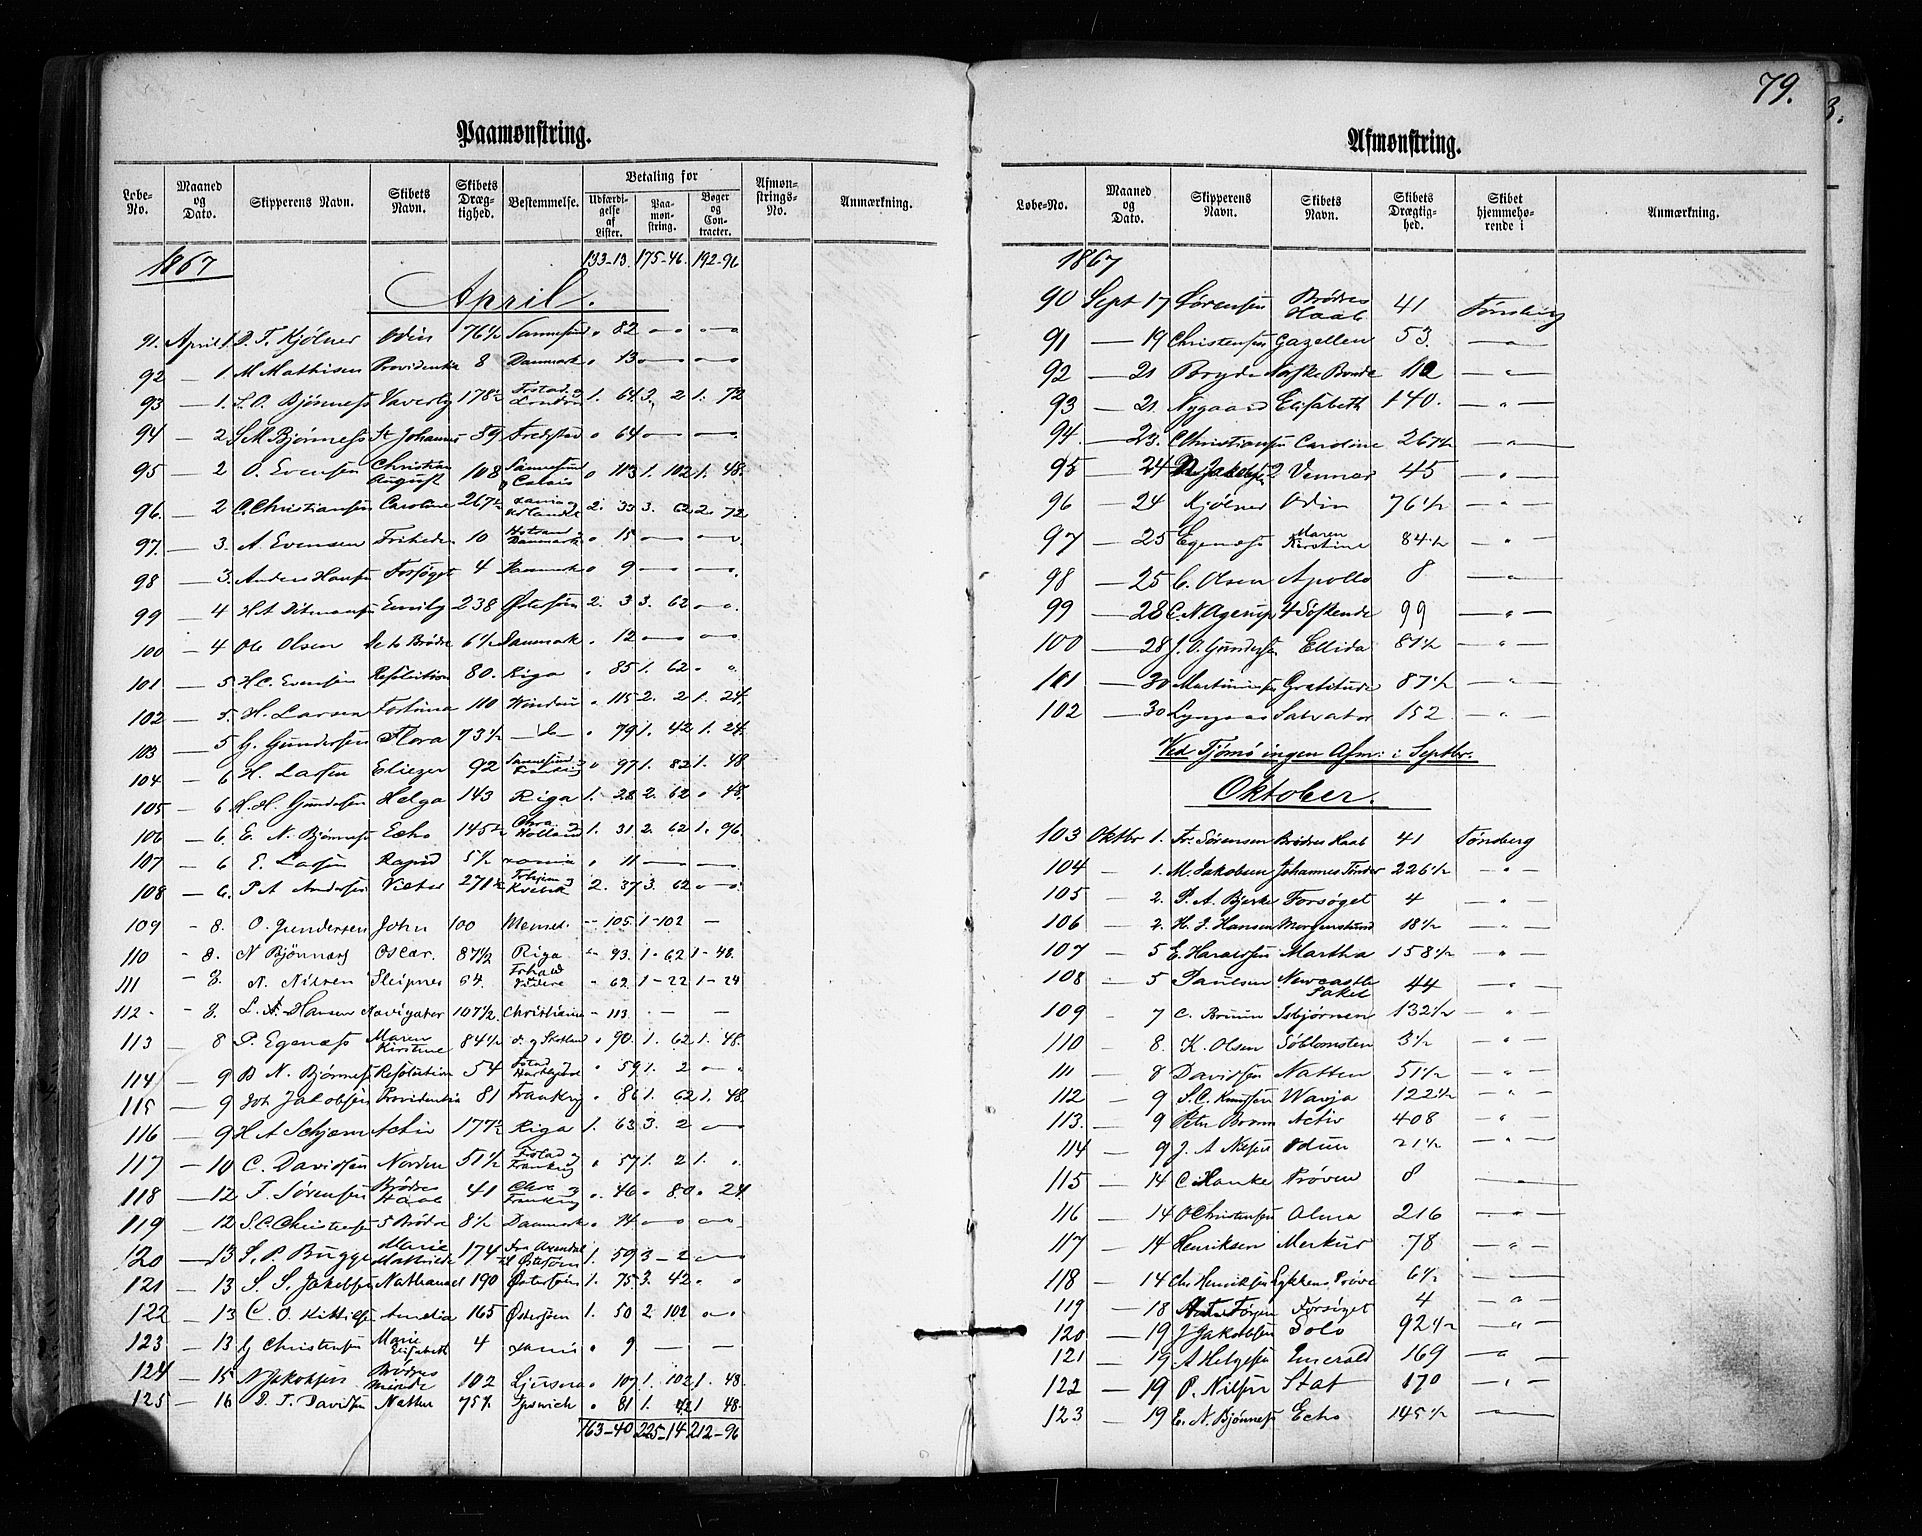 79.
Paamønstring.
Løbe-No. Maaned og Dato. Skipperens Navn. Skibets Navn. Skibets Drægtighed. Bestemmelse. Betaling for Udfærdigelse af Lister. Paamønstring. Bøger og Contracter. Afmønstrings-No. Anmærkning.
1867 133-13. 175-46. 192-96
April.
91. April 1. D. T. Kjølner Odin 76½ Sannesund " 82 — —
92 — 1 M Mathisen Providentia 8 Danmark " 13 — —
93 — 1. Bjønness Waverly 178½ Frstad og London 1. 64 3. 2 1. 72
94 — 2 S M Bjønness St Johannes 39 Fredstad " 64 — —
95 — 2 O. Evensen Christian August 108 Sannesund Calais " 113 1. 102 1. 48
96. — 2 C. Christiansen Caroline 267½ 2. 33 3. 62 2. 72
97. — 3. A. Evensen Friheden 10 Danmark " 15 — —
98 — 3. Anders Hansen Forsøget 4 Danmark " 9 — —
99 — 4 H A Ditmansen Emily 238 Østersøen 2. 3 3. 62 —
100 — 4 Ole Olsen De to Brødre 6½ Danmark " 12 — —
101 — 5 H C. Evensen Resolution 80. Riga " 85 1. 62 " "
102 — 5. H. Larsen Fortuna 110 Windau " 115 2. 2 1. 24
103 — 5 G. Gundersen Flora 73½ — " 79 1. 42 1. 24
104 — 6 H. Lassen Eliezer 92 Sannesund Frankrig " 97 1. 82 1. 48
105 — 6 H. H. Gundersen Helga 143 Riga 1. 28 2. 62 " 48
106 — 6. E. N. Bjønness Echo 145½ Chra og Holland 1. 31 2. 62 1. 96
107 — 6 E. Lassen Rapid 5½ " 11 — —
108 — 6. P A Andersen 271½ 2. 37 3. 62 —
109 - 8. O. Gundersen John 100 Memel. " 105 1-102 —
110 - 8. N Bjønness Oscar. 87½ Riga " 93. 1-62 1-48
111 - 8. N. Nilsen Sleipner 64. " 62. 1-22 1-24
112 - 8. L. A. Hansen Navigator 107½ Christiania - 113. — —
113 — 8 P. Egenæss Maren Kirstine 84½ " 90. 1. 62 1. 48
114 — 9 B N. Bjønness Resolution 54 " 59 1. 2 —
115 — 9 Joh Jakobsen Providentia 81 Frankrig " 86 1. 62 1. 48
116 — 9 H A Schjem Activ 177½ Riga 1. 63 3. 2 —
117 — 10 C. Davidsen Norden 51½ Frstad og Frankrig " 57 1. 2 1. "
118 — 12 F. Sørensen Brødres Haab 41 Chra og Frankrig " 46 " 80 " 24
119 — 12 S. C. Christensen 5 Brødre 8½ Danmark " 14 — —
120 — 13 S. P. Bugge Marie Mathilde 174 Fra Arendal til Østersøen 1. 59 3 - 2 —
121 — 13 S. S. Jakobsen Nathanael 190 Østersøen 1. 75 3. 42 " "
122 — 13 C. O. Kittilsen Amelia 165 Østersøen 1. 50 2 102 "
123 — 13 G Christensen Marie Elisabeth 4 " 9 — —
124 — 15 Jakobsen Brødres Minde 102 Ljusna " 107 1. 102 1. 48
125 — 16 D. T. Davidsen Natten 75½ Ipswich " 81 1. 42 1 48
163-40 225-14 212-96
Afmønstring.
Løbe-No. Maaned og Dato. Skipperens Navn. Skibets Navn. Skibets Drægtighed. Skibet hjemmehørende i Anmærkning.
1867
90 Sept 17 Sørensen Brødres Haab 41 Tønsberg
91 — 19 Christensen Gazellen 53. — " —
92 — 21 Bryde Norske Bonde 112 — " —
93 — 21. Nygaard Elisabeth 140. — " —
94. — 23. C Christiansen Caroline 267½ — " —
95 — 24 Jakobsen 2 Venner 45 — " —
96 — 24 Kjølner Odin 76½ — " —
97 — 25 Egenæss Maren Kirstine 84½ — " —
98 — 25 C. Olsen Apollo 8 — " —
99 — 28 C. N Agerup 4 Søskende 99 — " —
100 — 28 J. O. Gundersen Ellida 87½ — " —
101 — 30 Martiniusen Gratitude 87½ — " —
102 — 30 Lyngaas Salvator 152 — " —
Ved Tjømø ingen Afm: i Septbr.
Oktober.
103 Oktbr 1. Fr. Sørensen Brødres Haab 41 Tønsberg
104 — 1. M. Jakobsen Johannes Tønder 226½ — " —
105 — 2. P. A. Bjerke Forsøget 4 — " —
106 — 2. H. J. Hansen Morgenstund 18½ — " —
107 — 5 E. Haraldsen Martha 158½ — " —
108 — 5 Paulsen Newcastle Paket 44 — " —
109 - 7 C. Bruun Isbjørnen 132½ — " —
110 — 8. K. Olsen Søblomsten 3½ — " —
111 — 8 Davidsen Natten 51½ — " —
112 — 9 S. C. Knutsen Wanja 122½ — " —
113. — 9 Petr Bruun Activ 408 — " —
114 — 9 J. A Nilsen Odin 21½ — " —
115 — 14 C Hanke Prøven 8 — " —
116 — 14 O Christensen Alma 216 — " —
117 — 14 Henriksen Merkur 78 — " —
118 — 14 Chr Henriksen Lykkens Prøve 6½ — " —
119 — 18 Forsøget 4 — " —
120 — 19 J Jakobsen Solo 92½ — " —
121 — 19 A Helgesen Emerald 169 — " —
122 — 19 P. Nilsen Stat 170 — " —
123 — 19 E. N. Bjønness Echo 145½ — " —